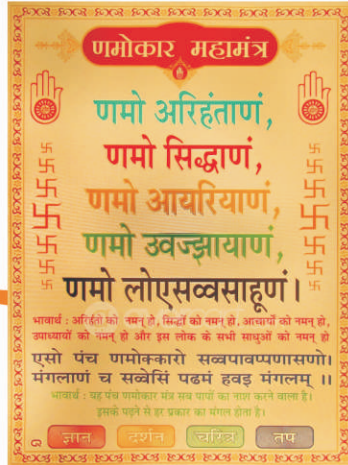 णमोकार महामंत्र
णमो अरिहंताणं,
णमो सिद्धाणं,
णमो आयरियाणं,
णमो उवज्झायाणं,
णमो लोएसव्वसाहूणं।
भावार्थ : अरिहंतो को नमन् हो, सिद्धों को नमन् हो, आचार्यों को नमन् हो,
उपाध्यायों को नमन् हो और इस लोक के सभी साधुओं को नमन् हो
एसो पंच णमोक्कारो सव्वपावप्पणासणो।
मंगलाणं च सव्वेसिं पढमं हवइ मंगलम् ।।
भावार्थ : यह पंच णमोकार मंत्र सब पापों का नाश करने वाला है।
इसके पढ़ने से हर प्रकार का मंगल होता है।
ज्ञान दर्शन चरित्र तप